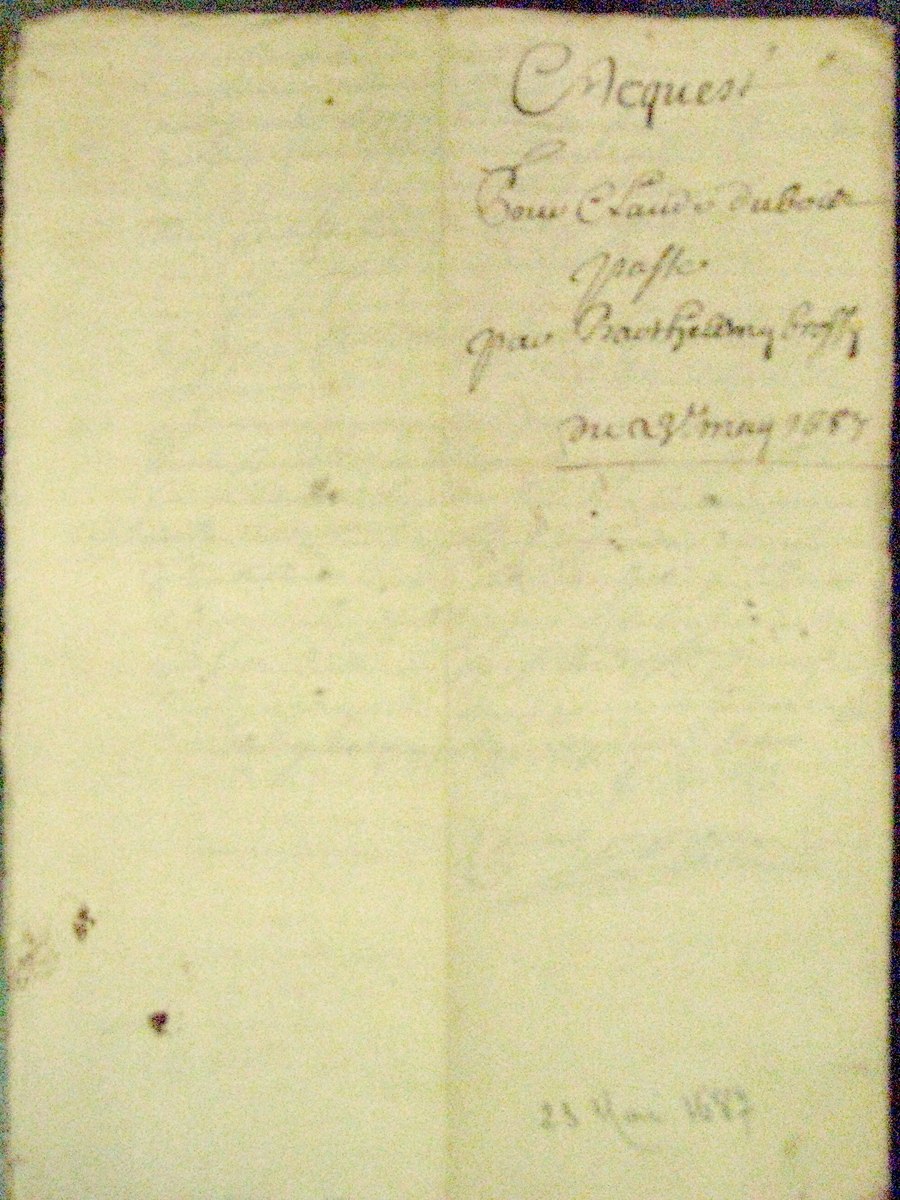 Acquest
Pour Claude dubois
passé
par Barthellemy
du 23e may 1687
23 Mai 1687